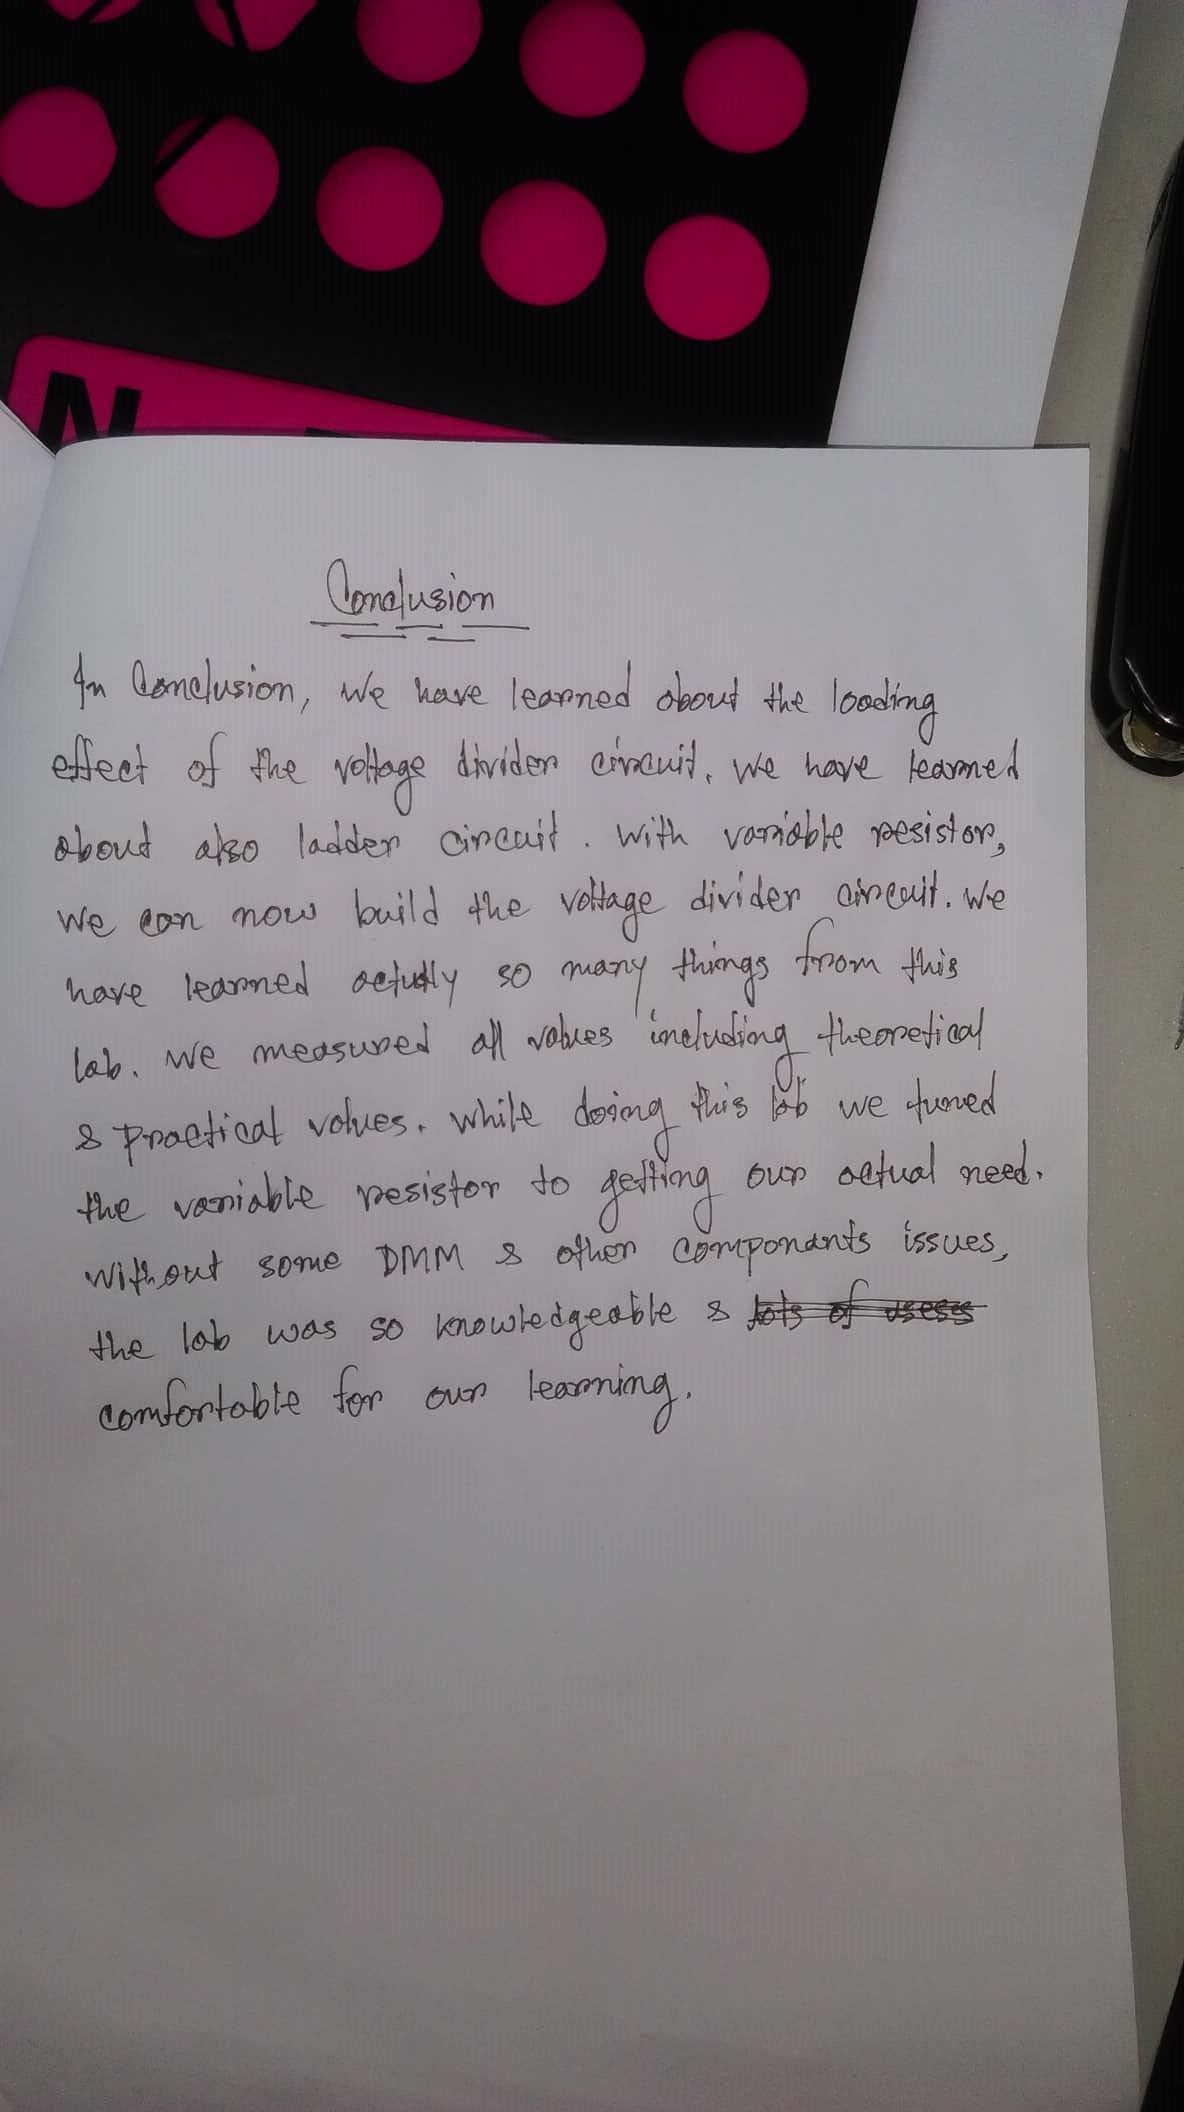 N
Conclusion
In Conclusion, we have learned about the loading
effect of the voltage divider circuit. we have learned
about also ladder circuit. with variable resistor,
we can now build the voltage divider circuit. we
have learned actually so many things from this
lab. we measured all values including theoretical
& practical values. while doing this lab we tuned
the variable resistor to getting our actual need.
without some DMM & other componants issues,
the lab was so knowledgeable & lots of uses
comfortable for our learning.